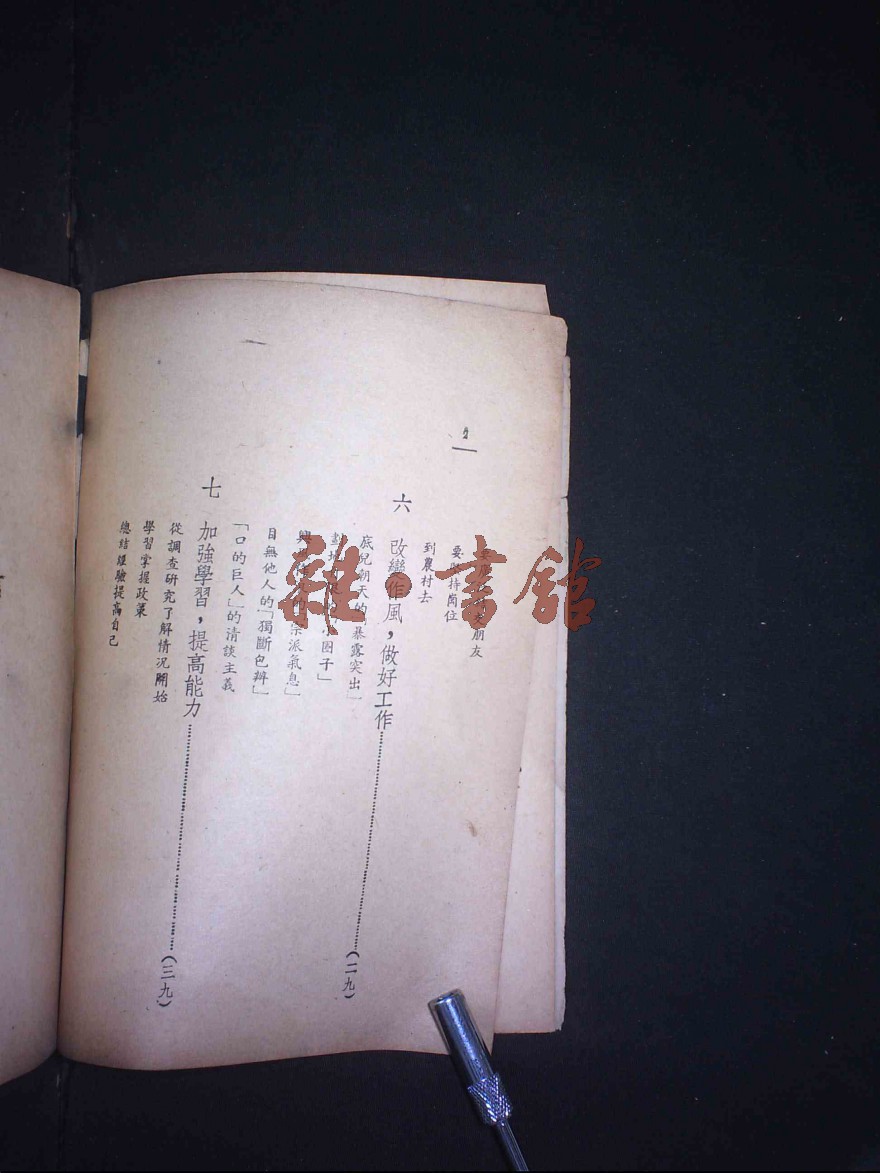 2
朋友
要堅持崗位
到農村去
六 改變作風,做好工作……(二九)
底兒朝天的「暴露突出」
小圈子」
宗派氣息」
目無他人的「獨斷包辦」
「口的巨人」的清談主義
七 加強學習,提高能力……(三九)
從調查研究了解情况開始
學習掌握政策
總結經驗提高自己
雜·書館